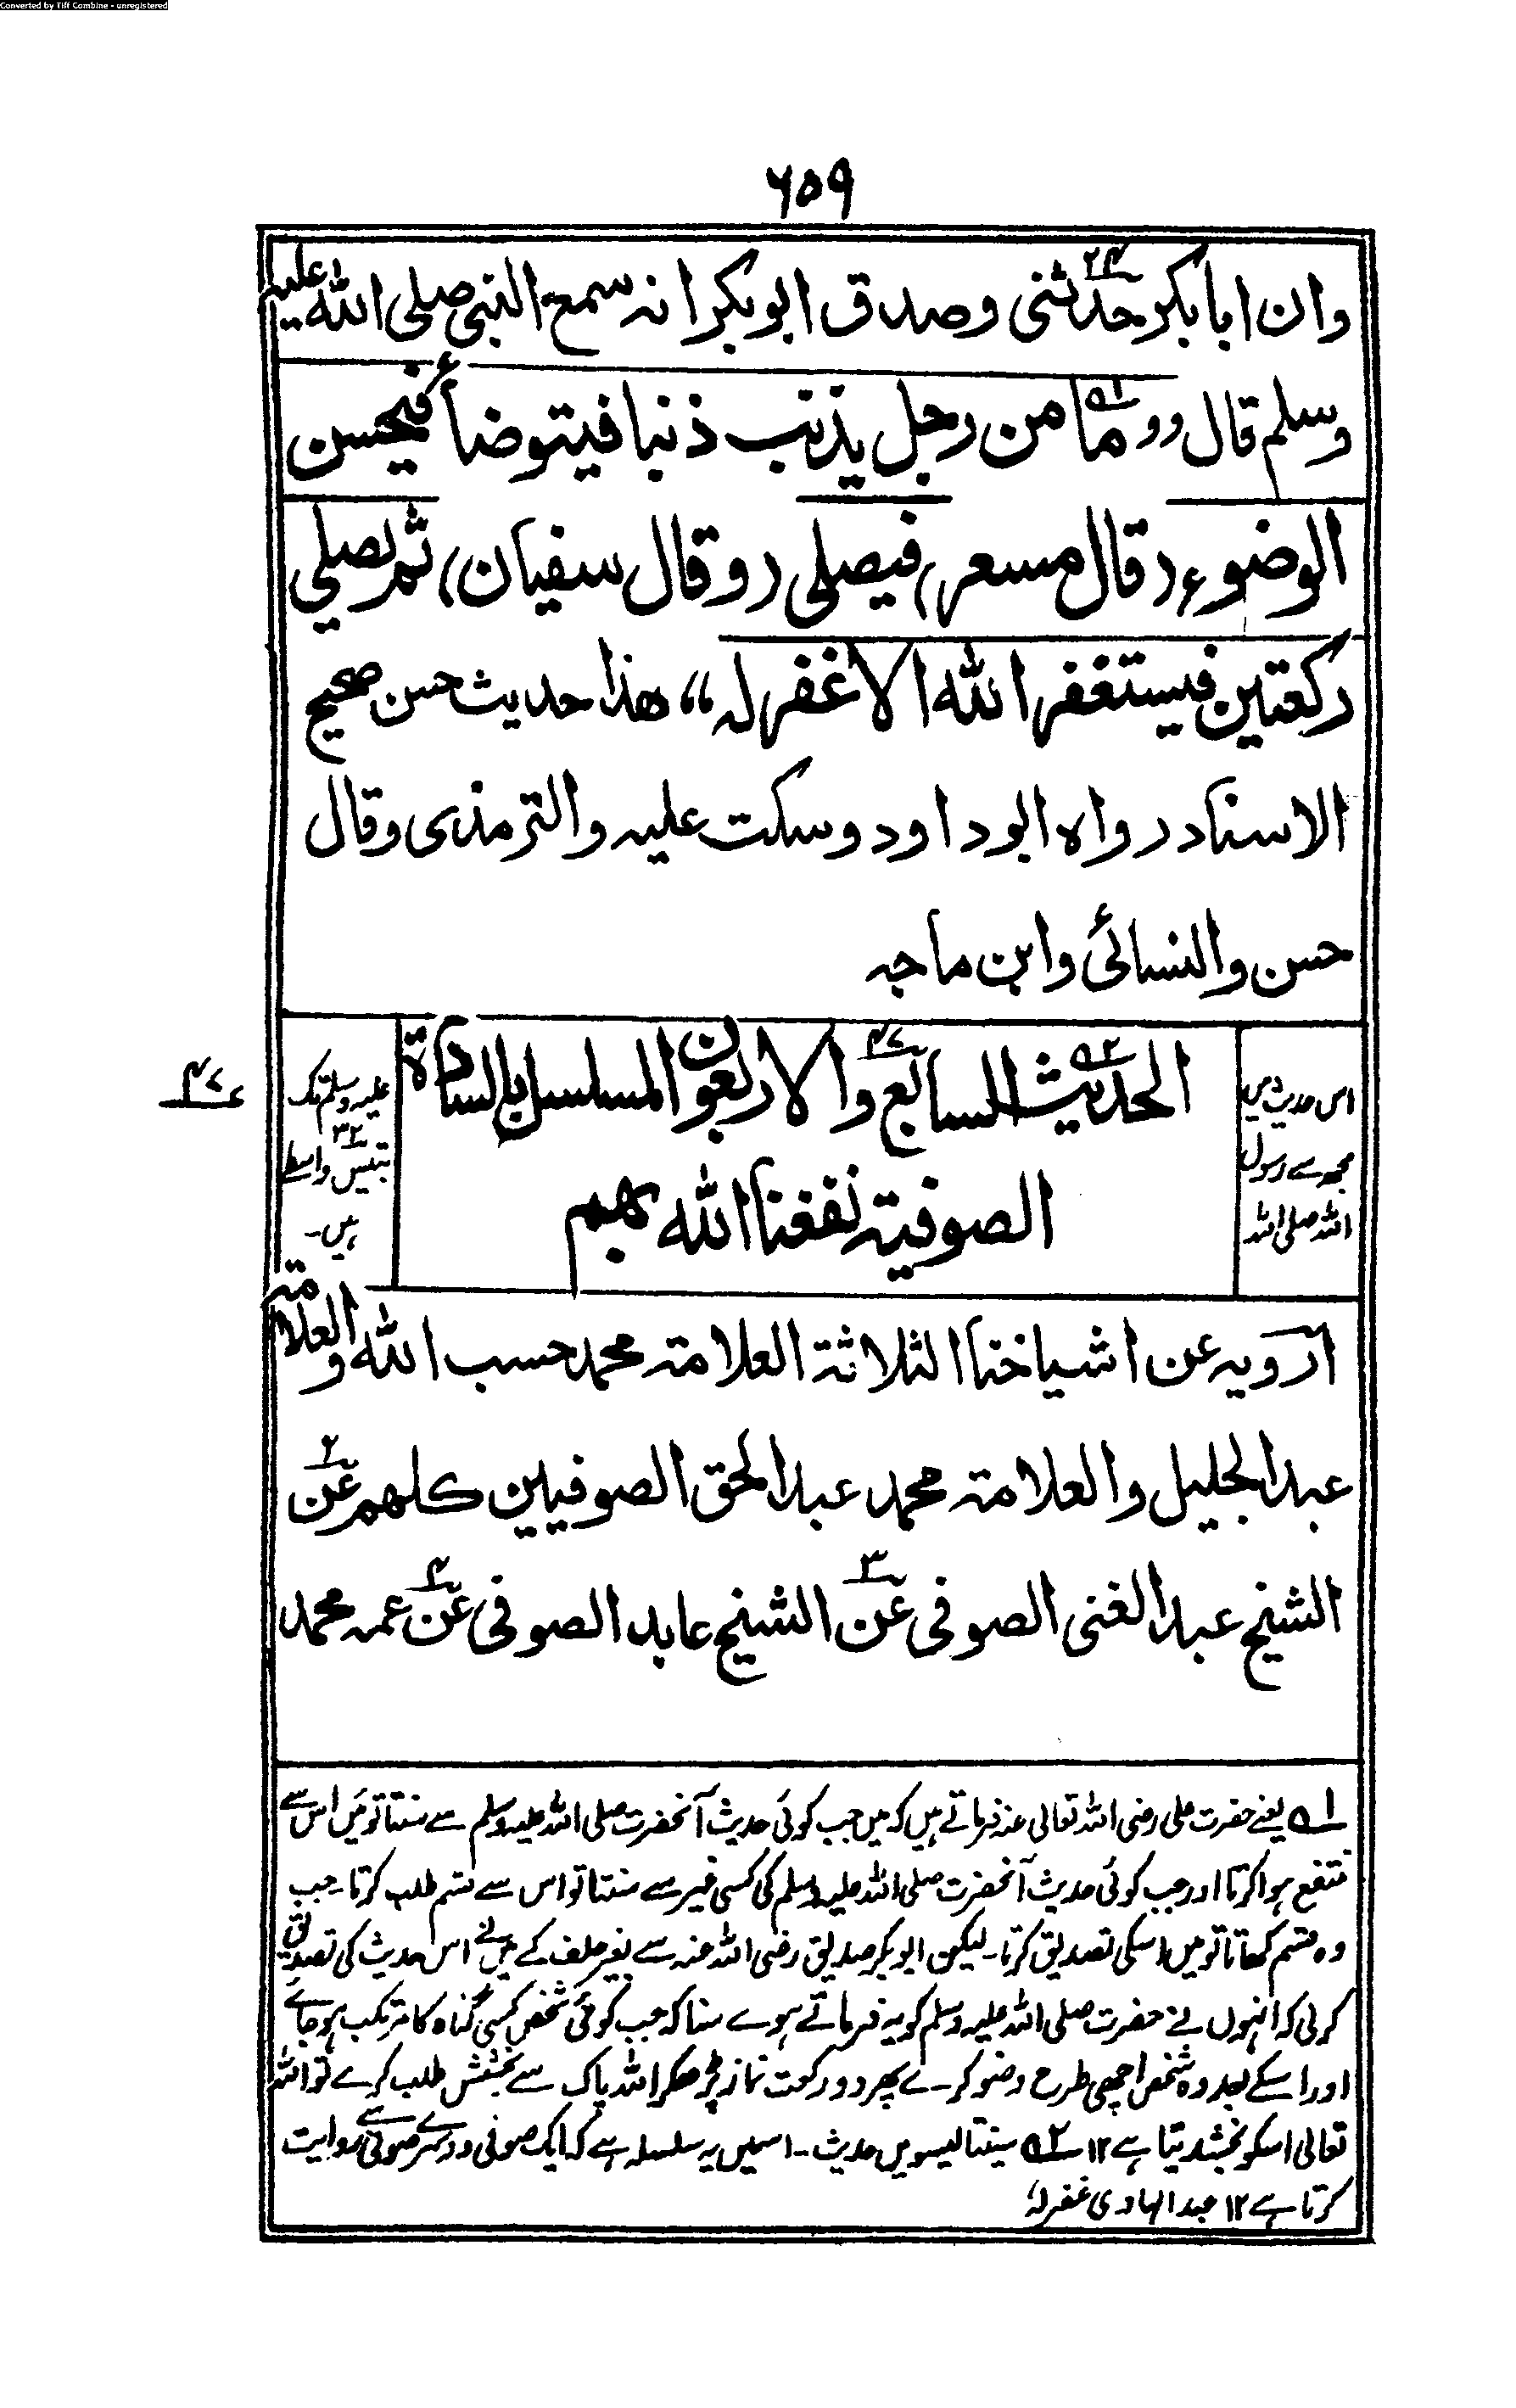 Converted by Tiff Combine - unregistered
٦٥٩
وان ابا بكر حدثني وصدق ابو بكر انه سمع النبي صلى الله عليه
٢٤
وسلم قال وو ما من رجل يذنب ذنبا فيتوضأ فيحسن
الوضوء (قال مسعر) فيصلى (وقال سفيان) ثم يصلي
ركعتين فيستغفر الله الا غفر له ،، هذا حديث حسن صحيح
الاسناد رواه ابو داود وسكت عليه والترمذى وقال
حسن والنسائى وابن ماجه
الحديث السابع والاربعون المسلسل بالسادة
٤٧
الصوفية نفعنا الله بهم
اس حدیث میں
مجھ سے رسول
اللہ صلی اللہ
علیہ وسلم تک
بتیس واسطے
٣٢
ہیں۔
٤٧
ارويه عن اشياخنا الثلاثة العلامة محمد حسب الله والعلامة
عبد الجليل والعلامة محمد عبد الحق الصوفيين كلهم عن
٢
الشيخ عبد الغنى الصوفى عن الشيخ عابد الصوفى عن عمه محمد
٣ ٤
١ے یعنے حضرت علی رضی اللہ تعالی عنہ فرماتے ہیں کہ میں جب کوئی حدیث آنحضرت صلی اللہ علیہ وسلم سے سنتا تو میں اس سے
منتفع ہوا کرتا اور جب کوئی حدیث آنحضرت صلی اللہ علیہ وسلم کی کسی غیر سے سنتا تو اس سے قسم طلب کرتا۔ جب
وہ قسم کھاتا تو میں اسکی تصدیق کرتا۔ لیکن ابوبکر صدیق رضی اللہ عنہ سے بغیر حلف کے میں نے اس حدیث کی تصدیق
کرلی کہ انہوں نے حضرت صلی اللہ علیہ وسلم کو یہ فرماتے ہوے سنا کہ جب کوئی شخص کسی گناہ کا مرتکب ہو جاے
اور اسکے بعد وہ شخص اچھی طرح وضو کرے پھر دو رکعت نماز پڑھکر اللہ پاک سے بخشش طلب کرے تو اللہ
تعالی اسکو بخشدیتا ہے ١٢ ٢ے سینتالیسویں حدیث۔ اسمیں یہ سلسلہ ہے کہ ایک صوفی دوسرے صوفی سے روایت
کرتا ہے ١٢ عبد الہادی غفرلہ